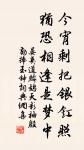 今宵剩把銀釭照
猶恐相逢是夢中
晏幾道鷓鴣天彩袖殷
勤捧玉鍾詞典網